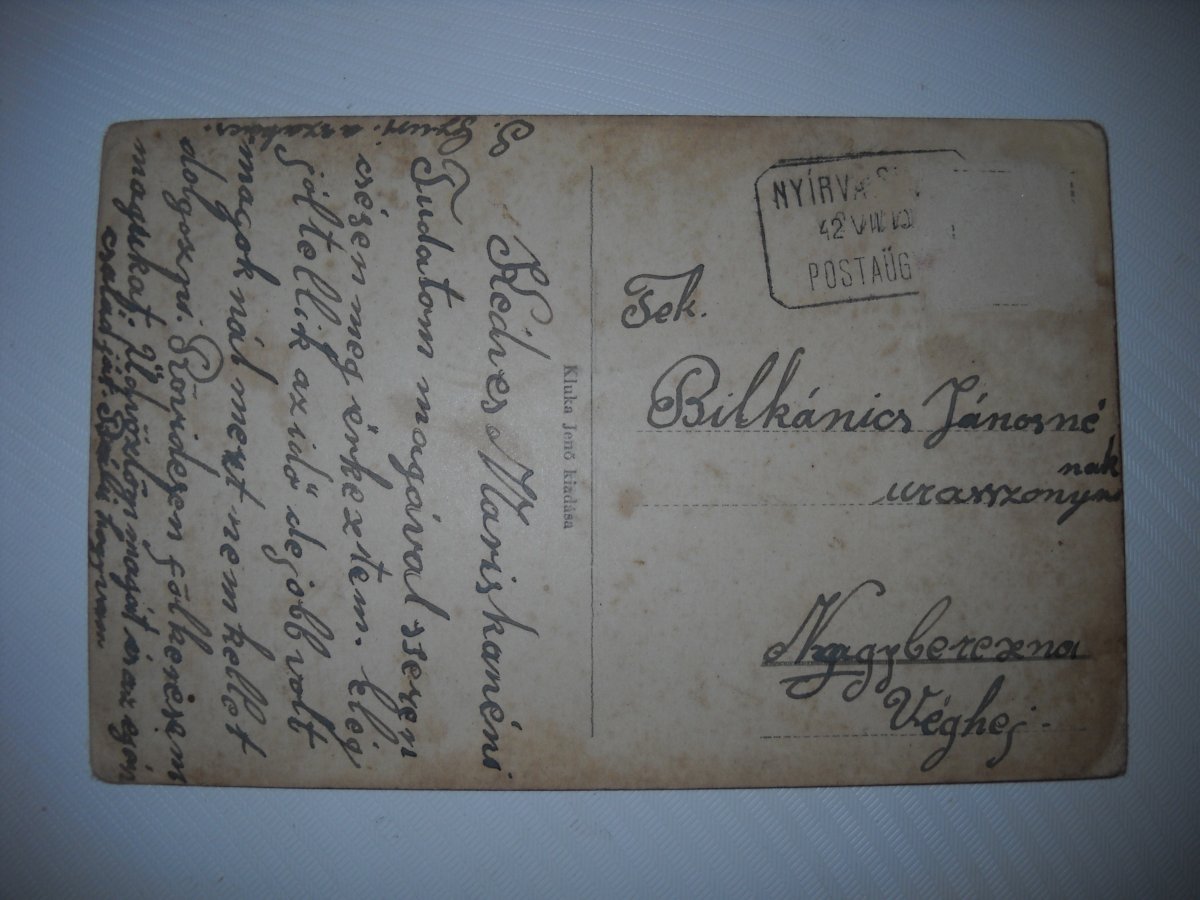 Kedves Mariskanéni
Tudatom magával sseren
csésen meg érkeztem. Elég
jól tellik az idő de jobb volt
magok nál mert nem kellet
dolgozni. Rövidesen fölkeresem
magukat. Üdvözlöm magát és az egéss
családját.
Kluka Jenő kiadása
NYÍRVA
42 VIII
POSTAÜG
Tek.
Bilkánics Jánosné
nak
urasszony
Nagyberezna
Véghej